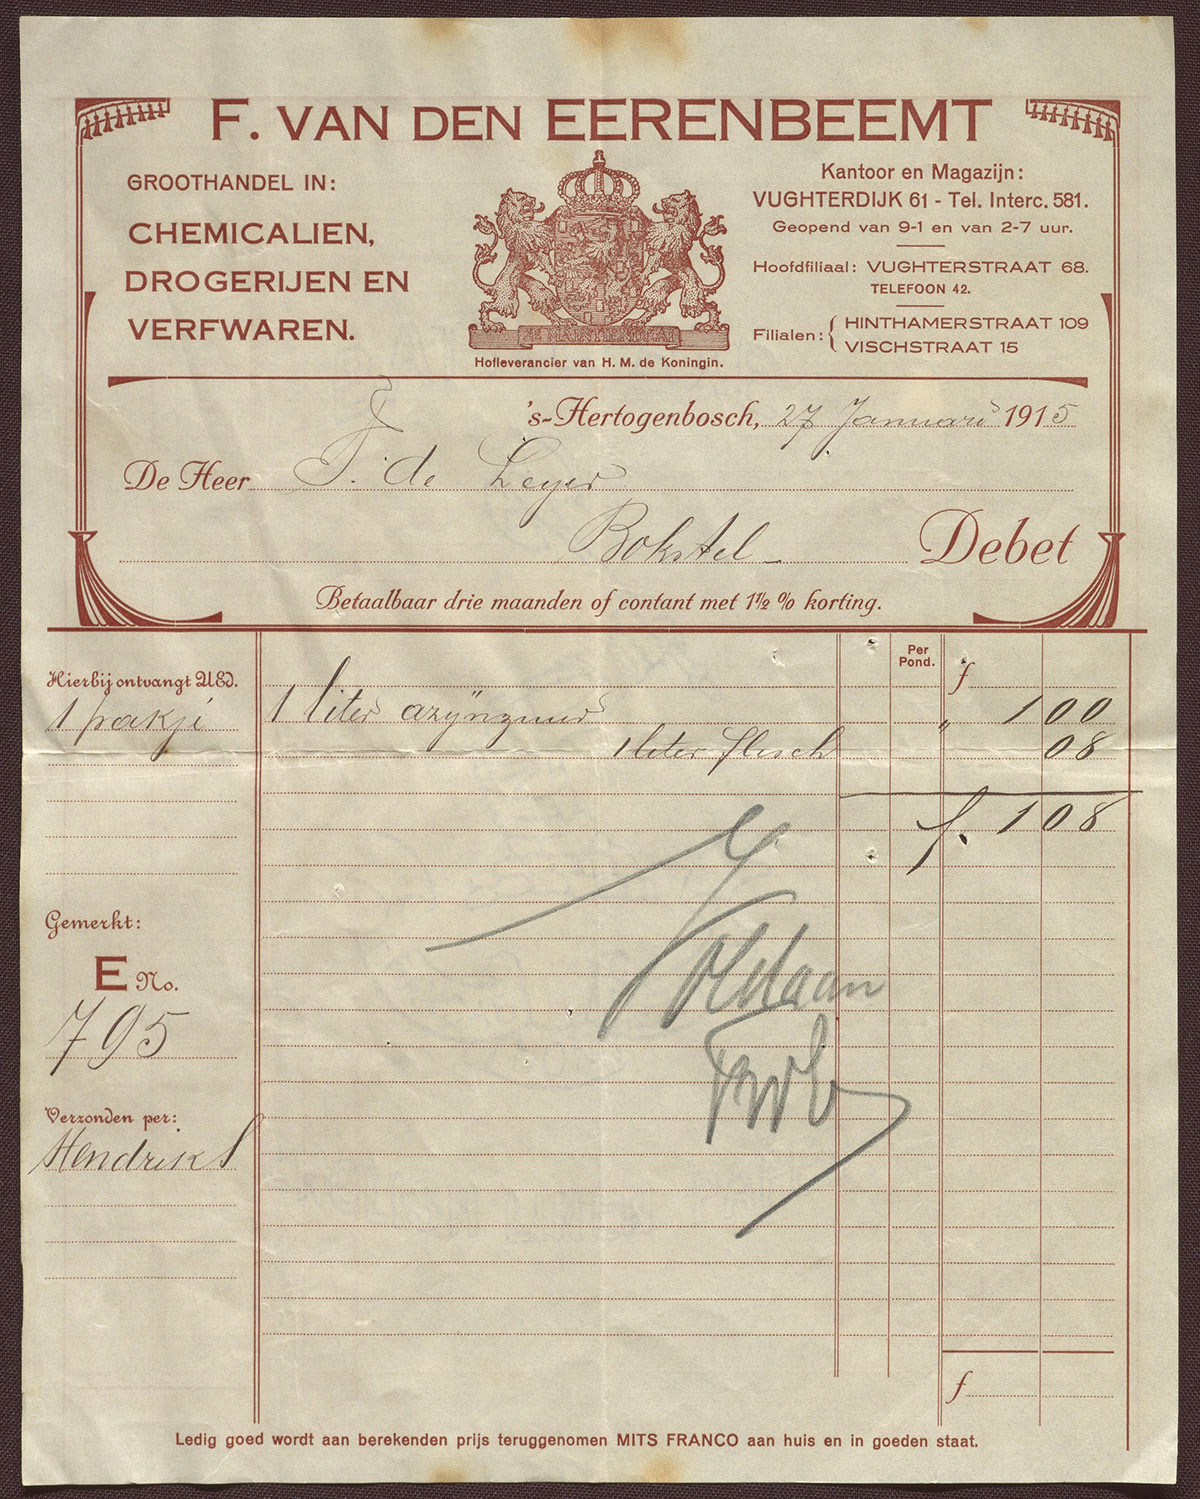 F. VAN DEN EERENBEEMT
GROOTHANDEL IN:
CHEMICALIEN,
DROGERIJEN EN
VERFWAREN.
JE MAINTIENDRAI
Hofleverancier van H. M. de Koningin.
Kantoor en Magazijn:
VUGHTERDIJK 61 - Tel. Interc. 581.
Geopend van 9-1 en van 2-7 uur.
Hoofdfiliaal: VUGHTERSTRAAT 68.
TELEFOON 42.
Filialen: { HINTHAMERSTRAAT 109
VISCHSTRAAT 15
's-Hertogenbosch, 27 Januari 1915
De Heer F. de Leyer
Bokstel
Debet
Betaalbaar drie maanden of contant met 1 1/2 % korting.
Per
Pond.
f
Hierbij ontvangt UEd.
1 pakje
1 liter azijnzuur " 1 00
1 liter flesch 08
f. 1 08
Gemerkt:
E No.
795
Voldaan
Verzonden per:
Hendriks
f
Ledig goed wordt aan berekenden prijs teruggenomen MITS FRANCO aan huis en in goeden staat.